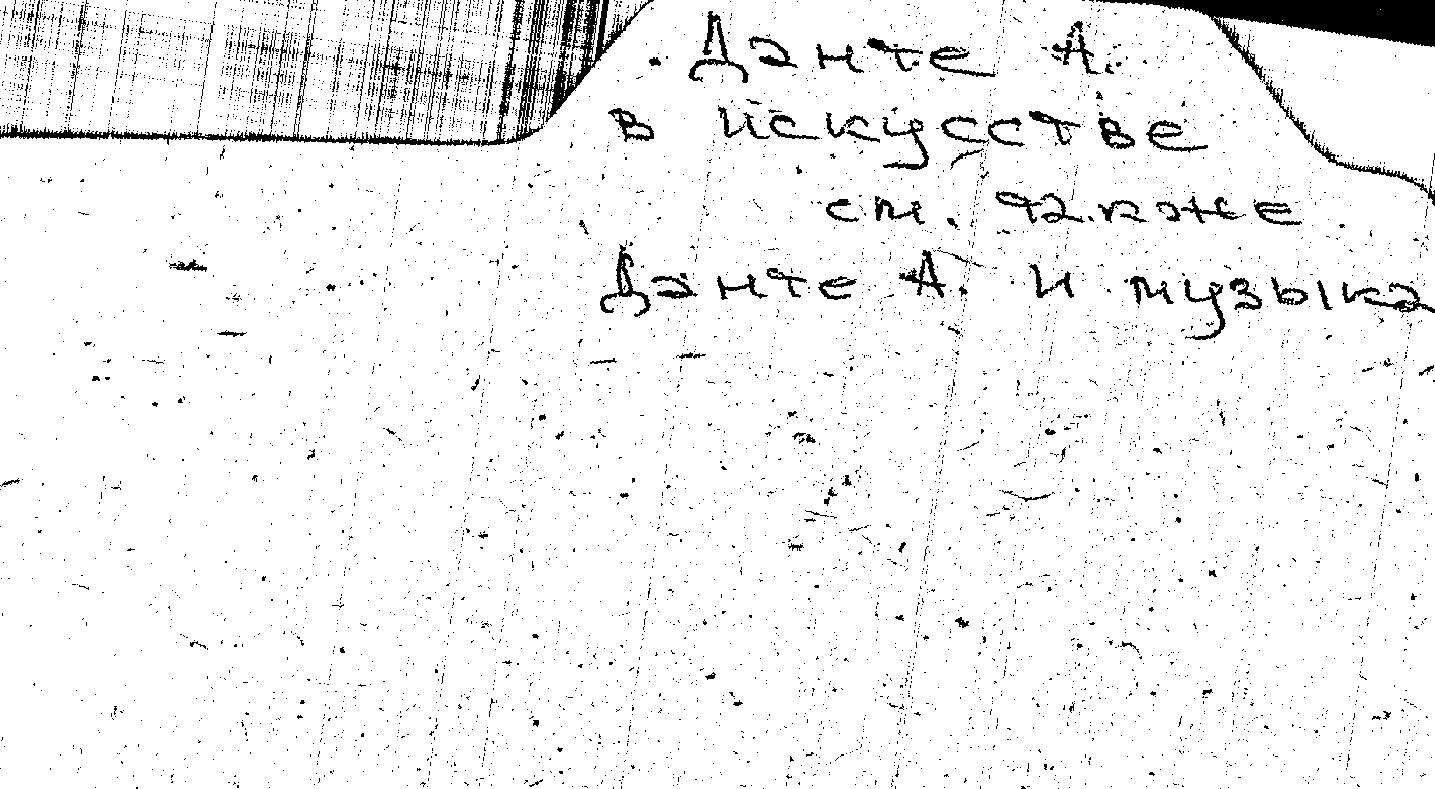 Данте А.
в искусстве
см. также
Данте А. и музыка